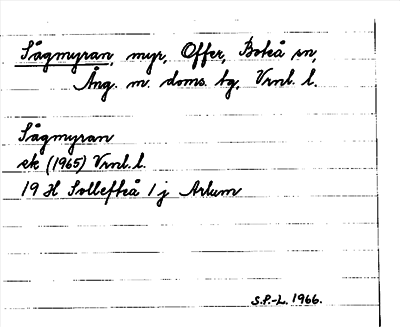 Sågmyran, myr, Offer, Boteå sn,
Ång. m. doms. tg, Vrnl. l.
Sågmyran
ek (1965) Vrnl. l.
19 H Sollefteå 1 j Artum
S.P.-L. 1966.